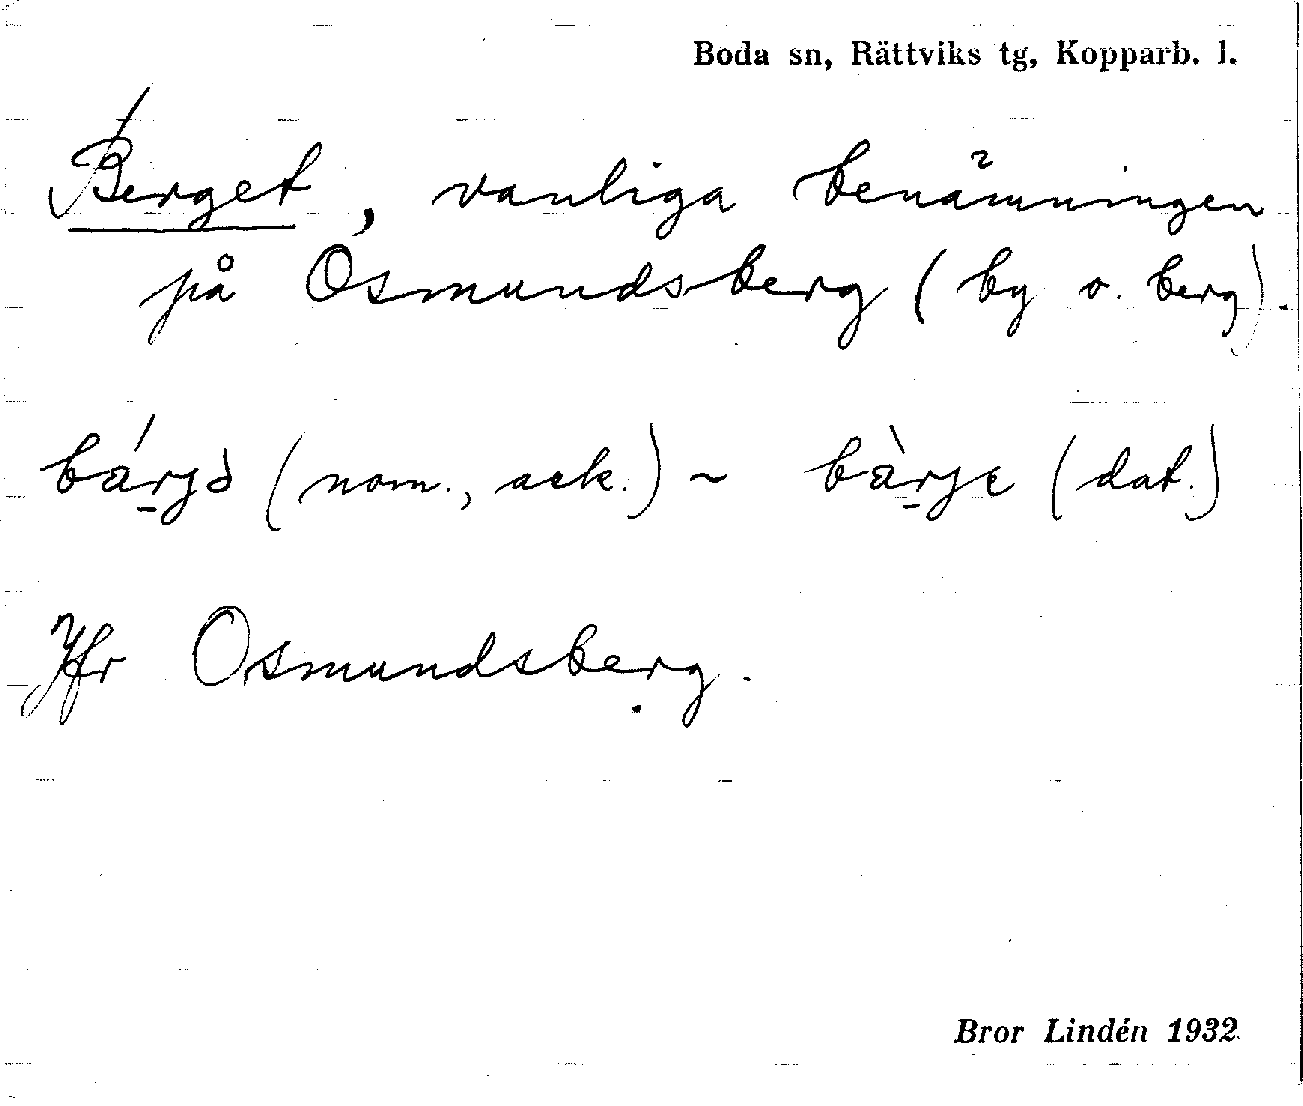 Boda sn, Rättviks tg, Kopparb. l.
Berget, vanliga benämningen
på Osmundsberg (by o. berg).
bárjə (nom., ack.) ~ bàrje (dat.)
Jfr Osmundsberg.
Bror Lindén 1932